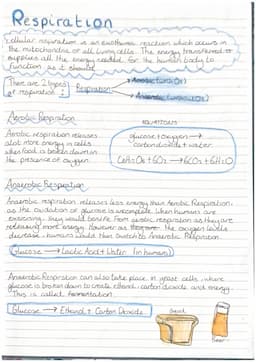 Respiration
Cellular respiration is an exothermic reaction which occurs in
the mitochondria of all living cells. The energy transferred
supplies all the energy needed for the human body to
function as it should.
There are 2 types
of respiration:
Respiration
Aerobic (uses O₂)
Anaerobic
Aerobic Respiration
Aerobic respiration releases
alot more energy in cells
when food is broken down in
the presence of oxygen.
EQUATIONS
glucose + oxygen →
carbon dioxide + water
C₆H₁₂O₆ + 6O₂ → 6CO₂ + 6H₂O
Anaerobic Respiration
Anaerobic respiration releases less energy than Aerobic Respiration
as the oxidation of glucose is incomplete. When humans are
exercising, they would benefit from aerobic respiration as they are
releasing more energy. However as the oxygen levels
decrease, humans would then switch to Anaerobic Respiration.
Glucose → Lactic Acid + Water (in humans)
Anaerobic Respiration can also take place in yeast cells, where
glucose is broken down to create ethanol, carbon dioxide and energy.
This is called fermentation.
Glucose → Ethanol + Carbon Dioxide
Bread
Beer